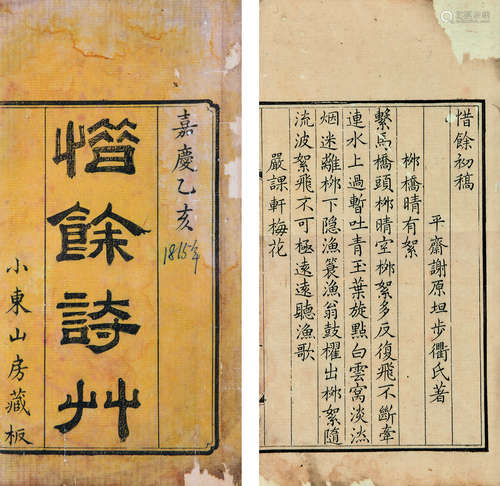 嘉慶乙亥
1815年
惜餘詩艸
小東山房藏板
惜餘初稿
平齋謝原坦步衢氏著
柳橋晴有絮
繫馬橋頭柳晴空柳絮多反復飛不斷牽
連水上過暫吐青玉葉旋點白雲窩淡淡
烟迷離柳下隐漁簑漁翁鼓櫂出柳絮隨
流波絮飛不可極遠遠聽漁歌
嚴課軒梅花